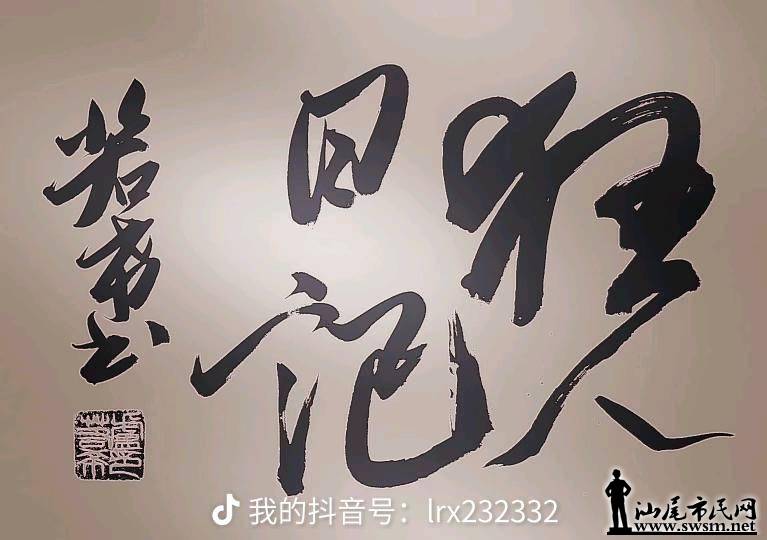 狂人
日记
若希书
我的抖音号：lrx232332
汕尾市民网
www.swsm.net